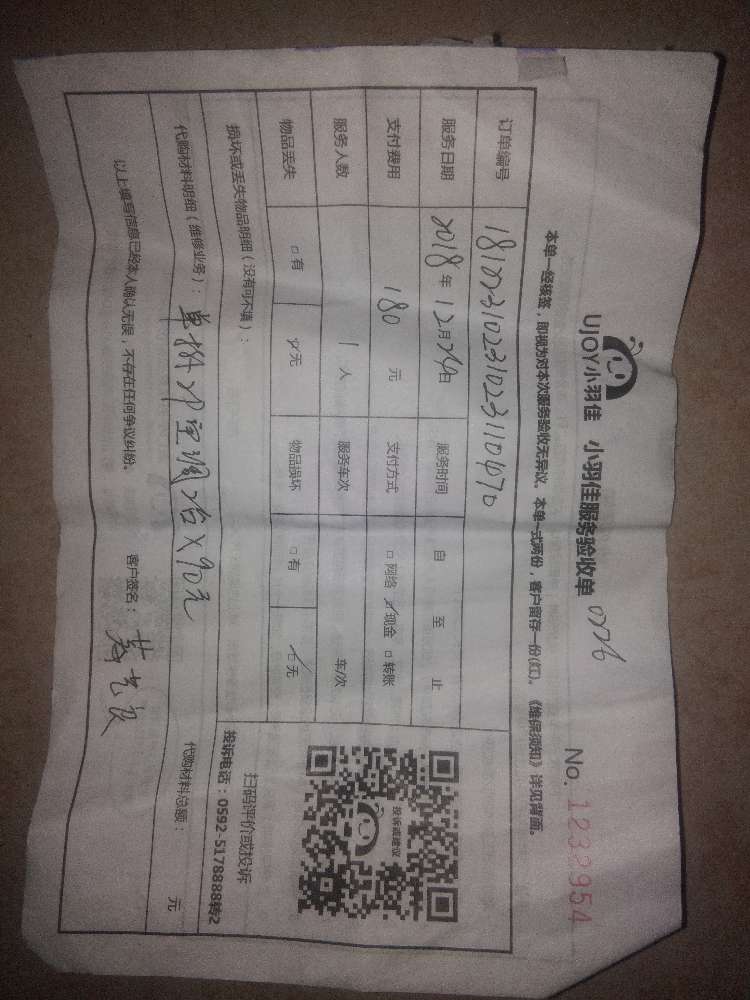 UJOY小羽佳 小羽佳服务验收单 0726
No. 1232954
本单一经核签，即视为对本次服务验收无异议。本单一式两份，客户留存一份(红)。《维保须知》详见背面。
订单编号 18102310231023110470
服务日期 2018年12月26日 服务时间 自 至 止
支付费用 180 元 支付方式 □网络 ☑现金 □转账
服务人数 1 人 服务车次 车/次
物品丢失 □有 ☑无 物品损坏 □有 ☑无
损坏或丢失物品明细（没有可不填）：
投诉或建议
扫码评价或投诉
投诉电话：0592-5178888转2
代购材料明细（维修业务）： 空调2台×90元 代购材料总额： 元
以上填写信息已经本人确认无误，不存在任何争议纠纷。 客户签名：